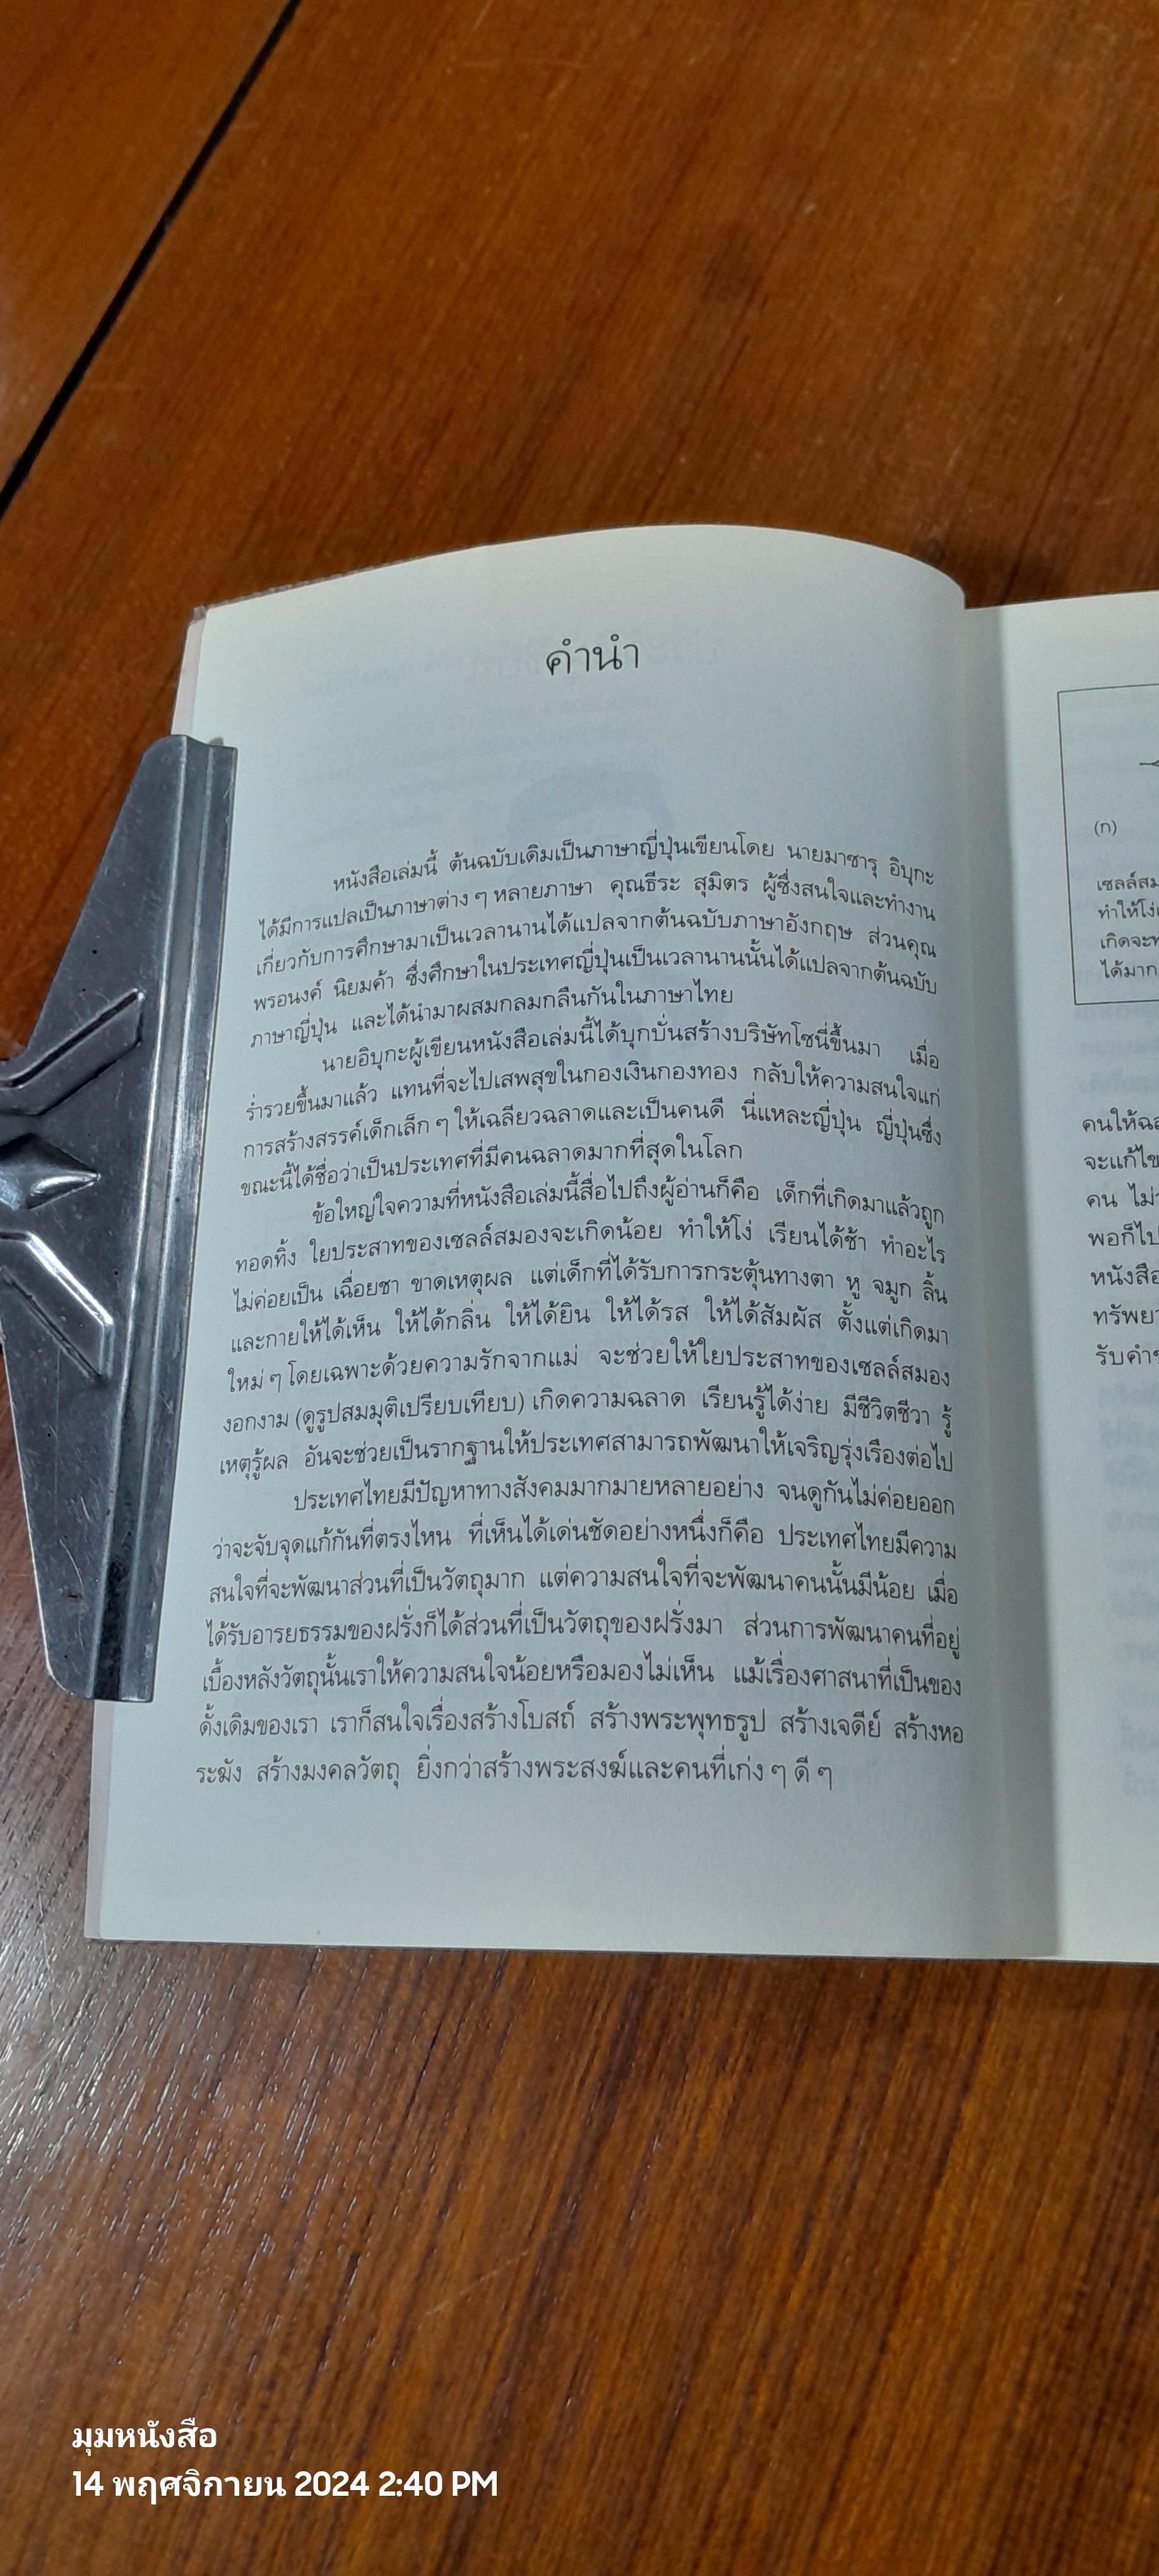 คำนำ
หนังสือเล่มนี้ ต้นฉบับเดิมเป็นภาษาญี่ปุ่นเขียนโดย นายมาซารุ อิบุกะ
ได้มีการแปลเป็นภาษาต่าง ๆ หลายภาษา คุณธีระ สุมิตร ผู้ซึ่งสนใจและทำงาน
เกี่ยวกับการศึกษามาเป็นเวลานานได้แปลจากต้นฉบับภาษาอังกฤษ ส่วนคุณ
พรอนงค์ นิยมค้า ซึ่งศึกษาในประเทศญี่ปุ่นเป็นเวลานานนั้นได้แปลจากต้นฉบับ
ภาษาญี่ปุ่น และได้นำมาผสมกลมกลืนกันในภาษาไทย
นายอิบุกะผู้เขียนหนังสือเล่มนี้ได้บุกบั่นสร้างบริษัทโซนี่ขึ้นมา เมื่อ
ร่ำรวยขึ้นมาแล้ว แทนที่จะไปเสพสุขในกองเงินกองทอง กลับให้ความสนใจแก่
การสร้างสรรค์เด็กเล็ก ๆ ให้เฉลียวฉลาดและเป็นคนดี นี่แหละญี่ปุ่น ญี่ปุ่นซึ่ง
ขณะนี้ได้ชื่อว่าเป็นประเทศที่มีคนฉลาดมากที่สุดในโลก
ข้อใหญ่ใจความที่หนังสือเล่มนี้สื่อไปถึงผู้อ่านก็คือ เด็กที่เกิดมาแล้วถูก
ทอดทิ้ง ใยประสาทของเซลล์สมองจะเกิดน้อย ทำให้โง่ เรียนได้ช้า ทำอะไร
ไม่ค่อยเป็น เฉื่อยชา ขาดเหตุผล แต่เด็กที่ได้รับการกระตุ้นทางตา หู จมูก ลิ้น
และกายให้ได้เห็น ให้ได้กลิ่น ให้ได้ยิน ให้ได้รส ให้ได้สัมผัส ตั้งแต่เกิดมา
ใหม่ ๆ โดยเฉพาะด้วยความรักจากแม่ จะช่วยให้ใยประสาทของเซลล์สมอง
งอกงาม (ดูรูปสมมุติเปรียบเทียบ) เกิดความฉลาด เรียนรู้ได้ง่าย มีชีวิตชีวา รู้
เหตุรู้ผล อันจะช่วยเป็นรากฐานให้ประเทศสามารถพัฒนาให้เจริญรุ่งเรืองต่อไป
ประเทศไทยมีปัญหาทางสังคมมากมายหลายอย่าง จนดูกันไม่ค่อยออก
ว่าจะจับจุดแก้กันที่ตรงไหน ที่เห็นได้เด่นชัดอย่างหนึ่งก็คือ ประเทศไทยมีความ
สนใจที่จะพัฒนาส่วนที่เป็นวัตถุมาก แต่ความสนใจที่จะพัฒนาคนนั้นมีน้อย เมื่อ
ได้รับอารยธรรมของฝรั่งก็ได้ส่วนที่เป็นวัตถุของฝรั่งมา ส่วนการพัฒนาคนที่อยู่
เบื้องหลังวัตถุนั้นเราให้ความสนใจน้อยหรือมองไม่เห็น แม้เรื่องศาสนาที่เป็นของ
ดั้งเดิมของเรา เราก็สนใจเรื่องสร้างโบสถ์ สร้างพระพุทธรูป สร้างเจดีย์ สร้างหอ
ระฆัง สร้างมงคลวัตถุ ยิ่งกว่าสร้างพระสงฆ์และคนที่เก่ง ๆ ดี ๆ
(ก)
เซลล์สม
ทำให้โง่
เกิดจะท
ได้มาก
คนให้ฉล
จะแก้ไข
คน ไม่ว
พอก็ไป
หนังสือ
ทรัพยา
รับคำช
มุมหนังสือ
14 พฤศจิกายน 2024 2:40 PM